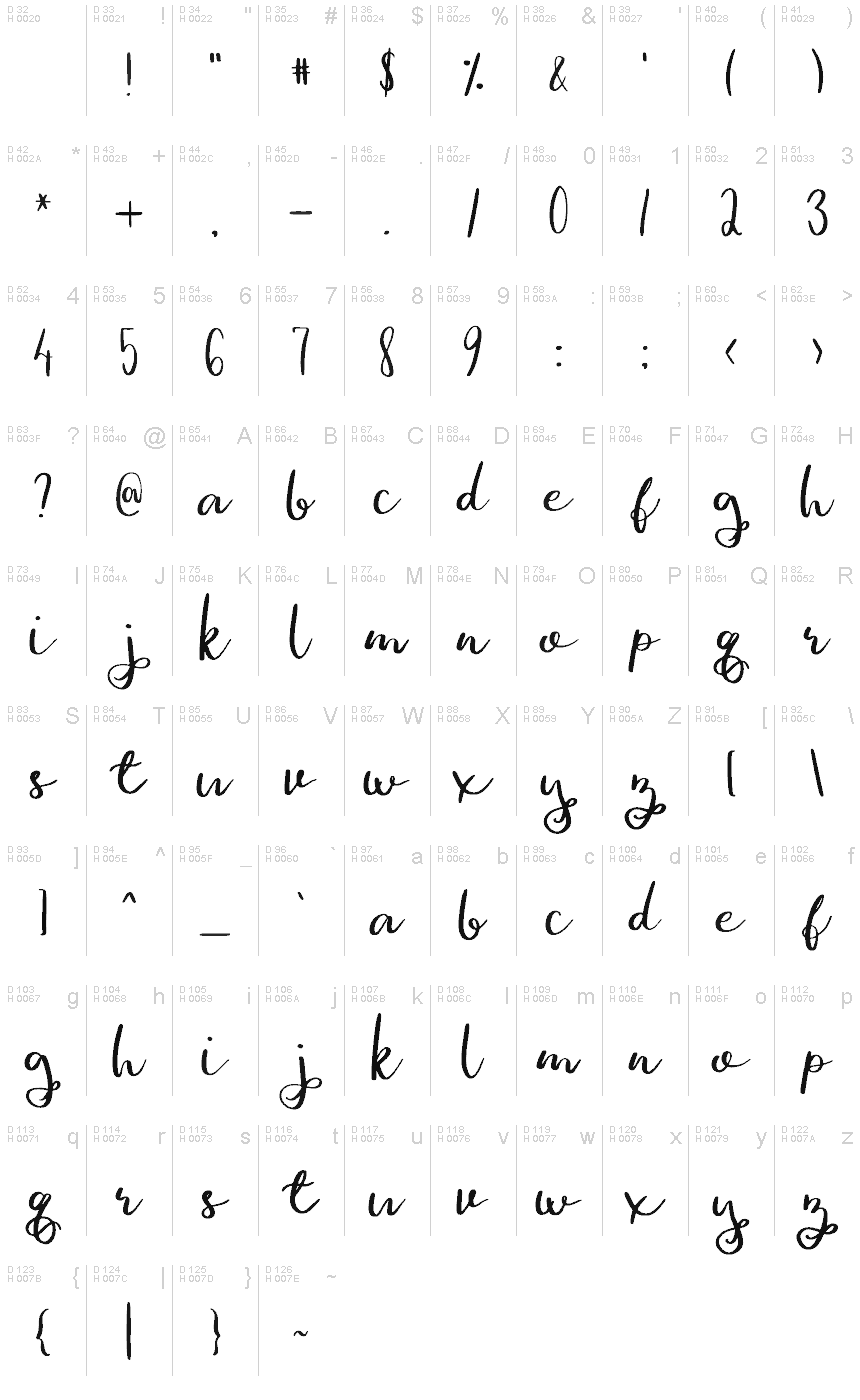 D 32 D 33 ! D 34 " D 35 # D 36 $ D 37 % D 38 & D 39 ' D 40 ( D 41 )
H 0020 H 0021 H 0022 H 0023 H 0024 H 0025 H 0026 H 0027 H 0028 H 0029
! " # $ % & ' ( )
D 42 * D 43 + D 44 , D 45 - D 46 . D 47 / D 48 0 D 49 1 D 50 2 D 51 3
H 002A H 002B H 002C H 002D H 002E H 002F H 0030 H 0031 H 0032 H 0033
* + , - . / 0 1 2 3
D 52 4 D 53 5 D 54 6 D 55 7 D 56 8 D 57 9 D 58 : D 59 ; D 60 < D 62 >
H 0034 H 0035 H 0036 H 0037 H 0038 H 0039 H 003A H 003B H 003C H 003E
4 5 6 7 8 9 : ; < >
D 63 ? D 64 @ D 65 A D 66 B D 67 C D 68 D D 69 E D 70 F D 71 G D 72 H
H 003F H 0040 H 0041 H 0042 H 0043 H 0044 H 0045 H 0046 H 0047 H 0048
? @ a b c d e f g h
D 73 I D 74 J D 75 K D 76 L D 77 M D 78 N D 79 O D 80 P D 81 Q D 82 R
H 0049 H 004A H 004B H 004C H 004D H 004E H 004F H 0050 H 0051 H 0052
i j k l m n o p q r
D 83 S D 84 T D 85 U D 86 V D 87 W D 88 X D 89 Y D 90 Z D 91 [ D 92 \
H 0053 H 0054 H 0055 H 0056 H 0057 H 0058 H 0059 H 005A H 005B H 005C
s t u v w x y z [ \
D 93 ] D 94 ^ D 95 _ D 96 ` D 97 a D 98 b D 99 c D 100 d D 101 e D 102 f
H 005D H 005E H 005F H 0060 H 0061 H 0062 H 0063 H 0064 H 0065 H 0066
] ^ _ ` a b c d e f
D 103 g D 104 h D 105 i D 106 j D 107 k D 108 l D 109 m D 110 n D 111 o D 112 p
H 0067 H 0068 H 0069 H 006A H 006B H 006C H 006D H 006E H 006F H 0070
g h i j k l m n o p
D 113 q D 114 r D 115 s D 116 t D 117 u D 118 v D 119 w D 120 x D 121 y D 122 z
H 0071 H 0072 H 0073 H 0074 H 0075 H 0076 H 0077 H 0078 H 0079 H 007A
q r s t u v w x y z
D 123 { D 124 | D 125 } D 126 ~
H 007B H 007C H 007D H 007E
{ | } ~